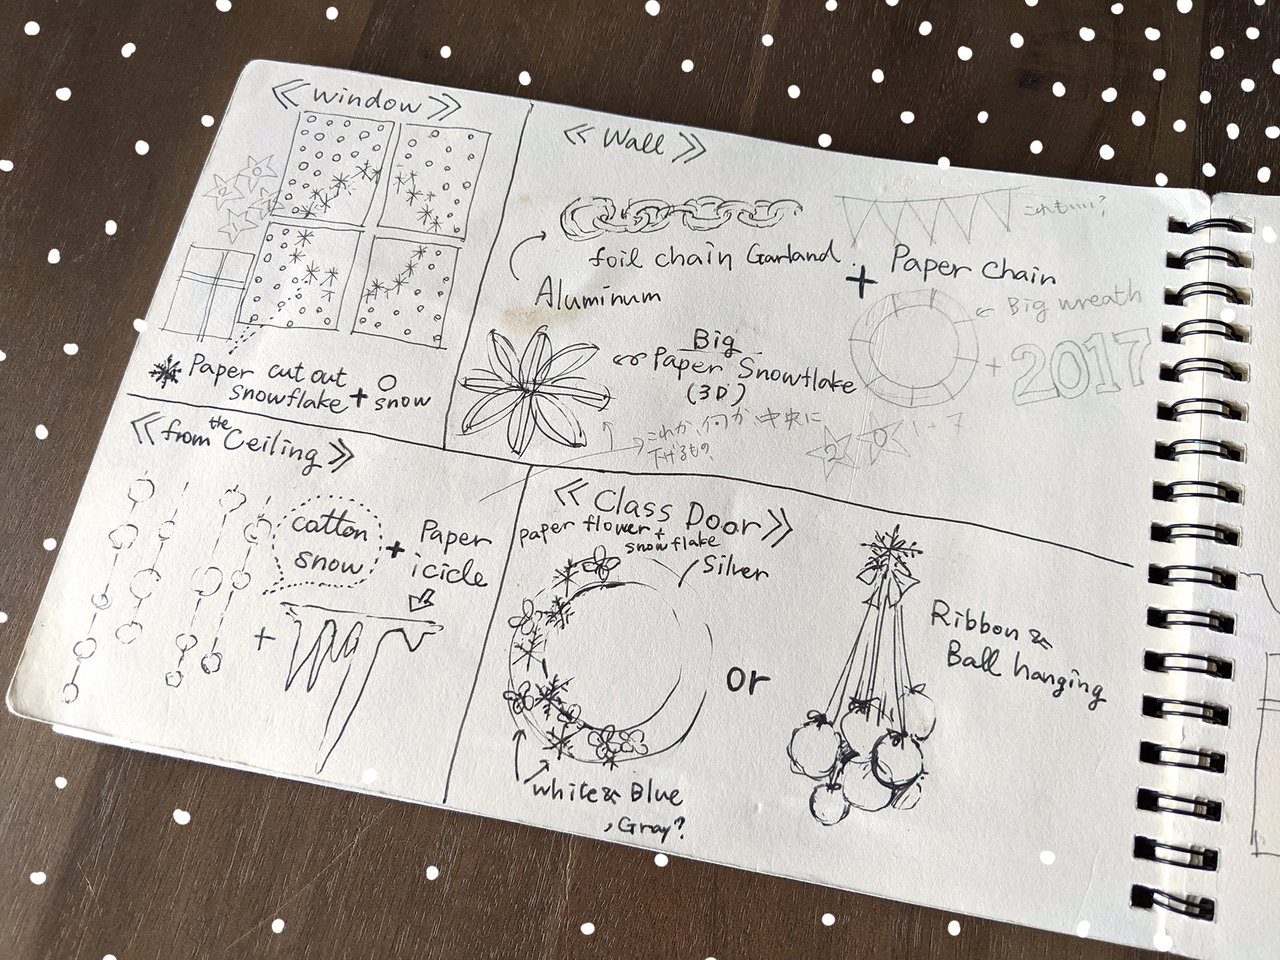 ≪ window ≫
Paper cut out
snowflake + ○ snow
≪ Wall ≫
foil chain Garland
Aluminum
これも……?
+ Paper chain
← Big wreath
+ 2017
Big
Paper Snowflake
(3D)
→これか、何か中央に
下げるもの、
2 0 1 + 7
≪ from the Ceiling ≫
cotton
snow
+ Paper
icicle
+
≪ Class Door ≫
paper flower +
snowflake
Silver
White & Blue
, Gray?
or
Ribbon &
Ball hanging